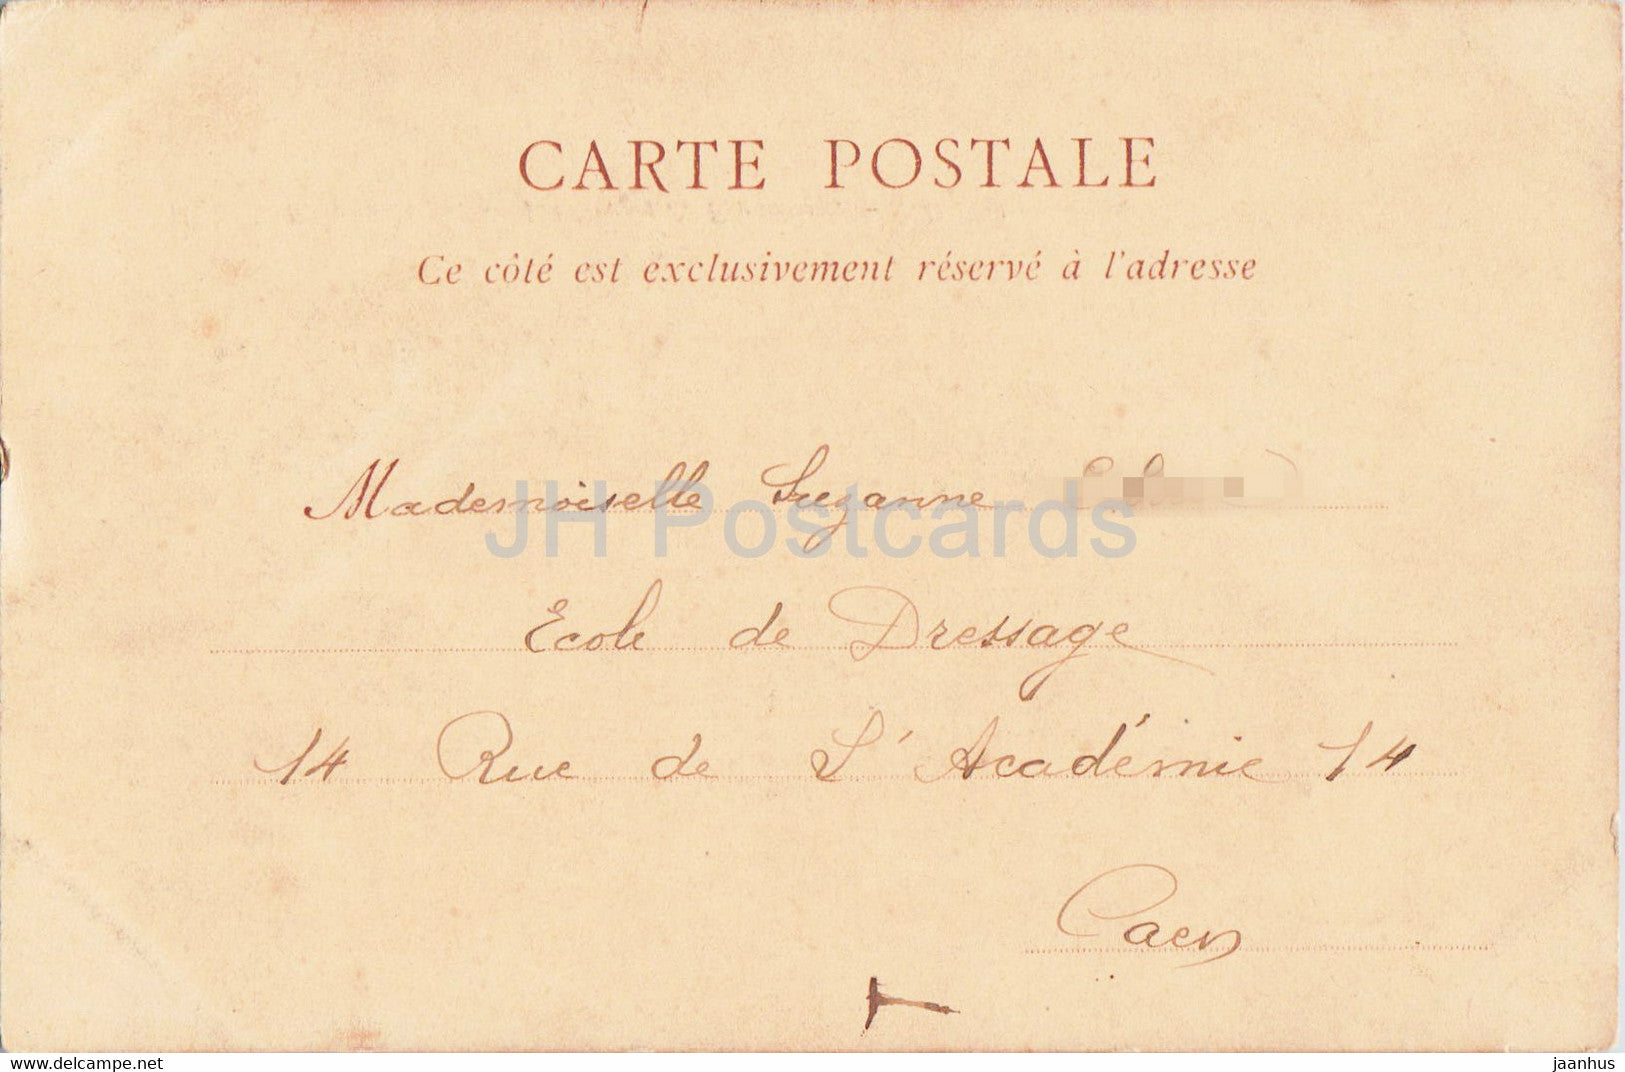 CARTE POSTALE
Ce côté est exclusivement réservé à l'adresse
Mademoiselle Suzanne
JH Postcards
Ecole de Dressage
14 Rue de L'Académie 14
Caen
https://www.delcampe.net
jaanhus